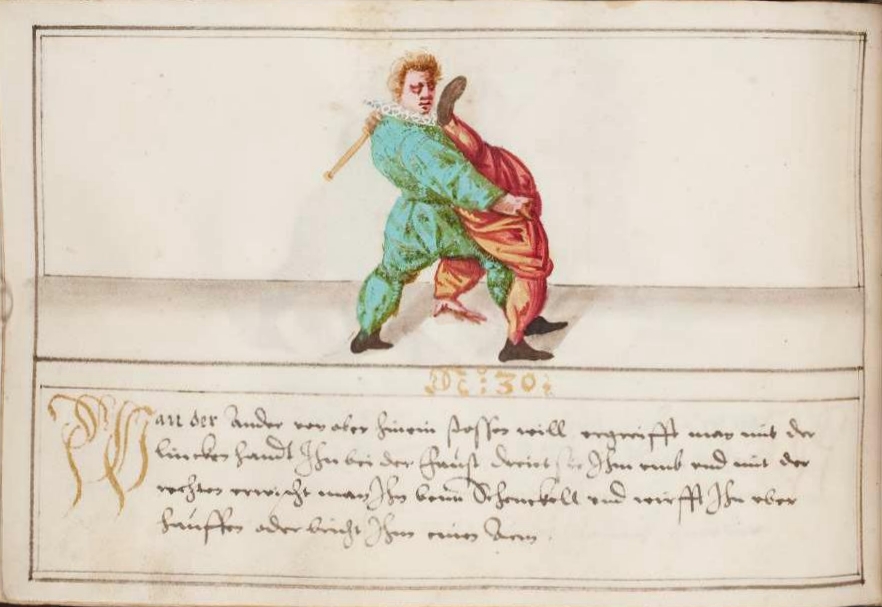 No: 30:
Wan der Ander von ober hinein stossen will ergreifft man mit der
lincken handt Ihn bei der Faust dreiet sie Ihm umb und mit der
rechten erwischt man Ihn beim Schenckell und wirfft Ihn uber
hauffen oder bricht Ihm einen Arm.